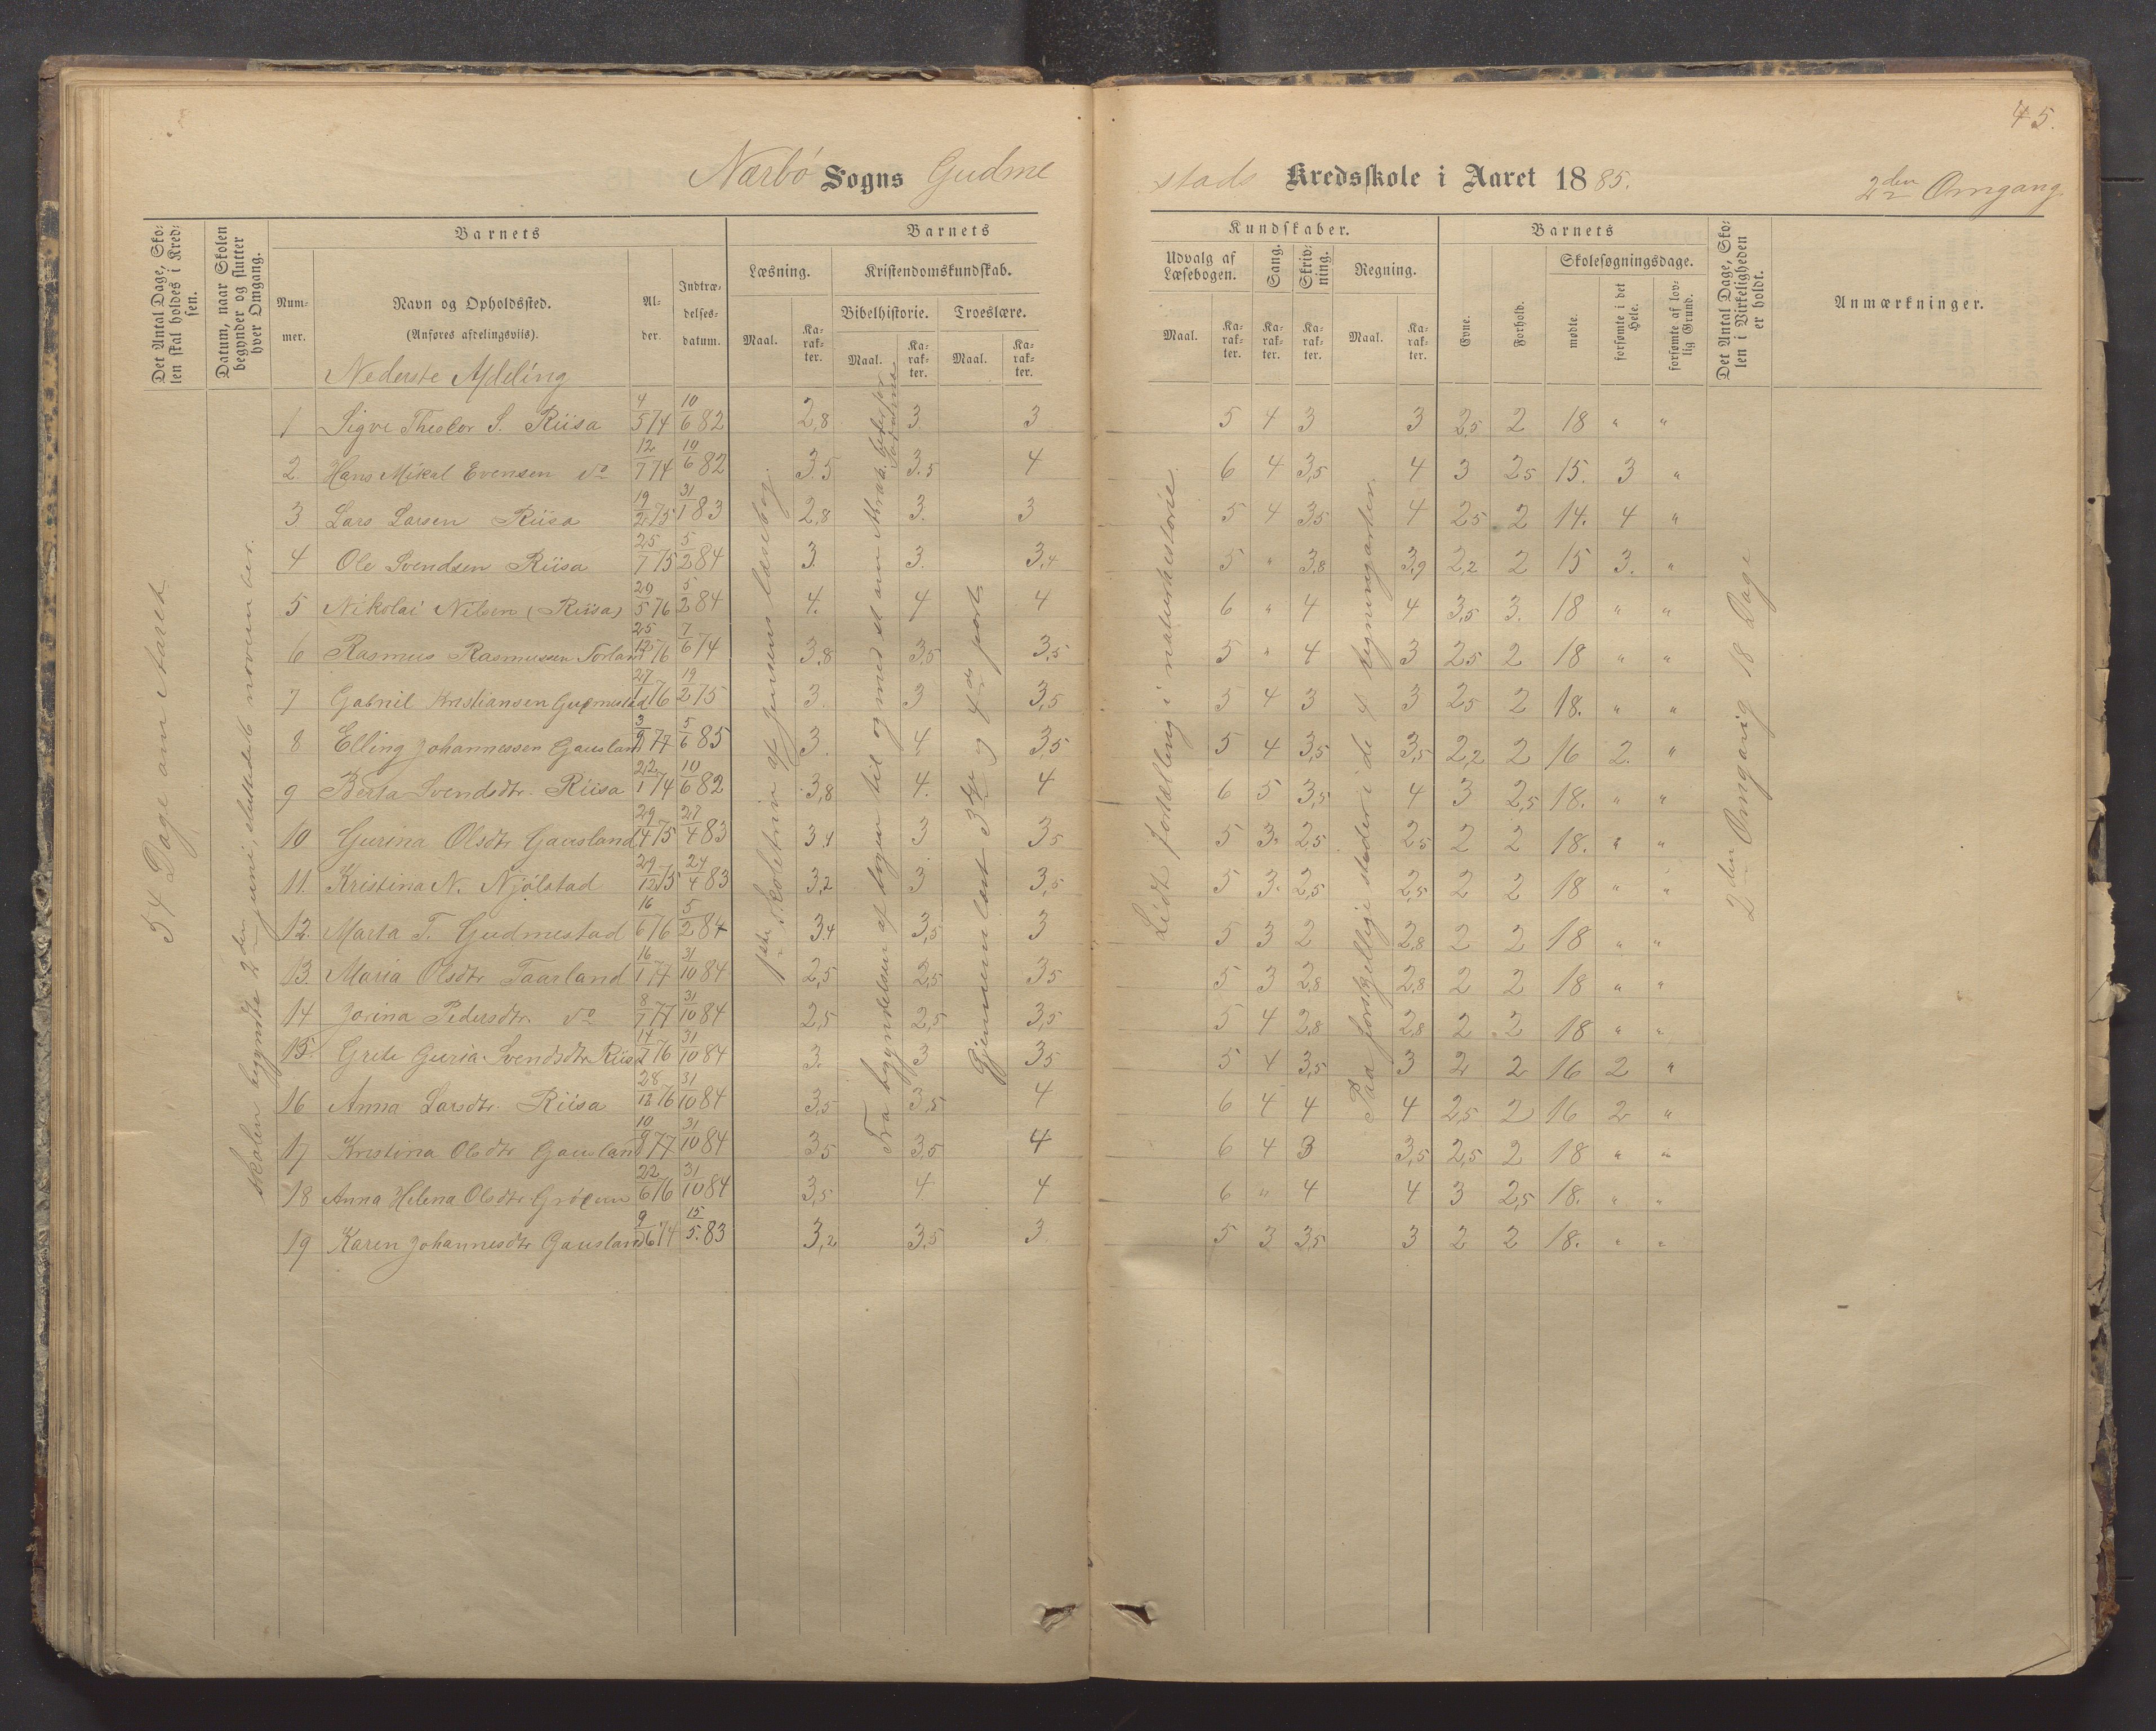 45.
Nærbö Sogns Gudme stads Kredsskole i Aaret 1885. 2den Omgang
Det Antal Dage, Sko-
len skal holdes i Kred-
sen.
Datum, naar Skolen
begynder og slutter
hver Omgang.
Barnets
Num-
mer.
Navn og Opholdssted.
(Anføres afdelingsviis).
Al-
der.
Indtræ-
delses-
datum.
Barnets
Læsning.
Maal.
Ka-
rak-
ter.
Kristendomskundskab.
Bibelhistorie.
Maal.
Ka-
rak-
ter.
Troeslære.
Maal.
Ka-
rak-
ter.
Kundskaber.
Udvalg af
Læsebogen.
Maal.
Ka-
rak-
ter.
Sang.
Ka-
rak-
ter.
Skriv-
ning.
Ka-
rak-
ter.
Regning.
Maal.
Ka-
rak-
ter.
Barnets
Evne.
Forhold.
Skolesøgningsdage.
mødte.
forsømte i det
Hele.
forsømte af lov-
lig Grund.
Det Antal Dage, Sko-
len i Virkeligheden
er holdt.
Anmærkninger.
Nederste Afdeling
54 Dage om Aaret
skolen begyndte 2den juni, sluttede november.
1ste skoletrin af Jensens læsebog.
Fra begyndelsen af bogen til og med
Gjennemlæst 3die og 4de part
Lidt fortælling i naturhistorie
Paa forskjellige steder i de 4 regningsarter.
2den Omgang 18 Dage
1 Sigve Theodor S. Riisa 4/5 74 10/6 82 2,8 3. 3 5 4 3 3 2,5 2 18 " "
2 Hans Mikal Evensen do 12/7 74 10/6 82 3.5 3.5 4 6 4 3,5 4 3 25 15. 3 "
3 Lars Larsen Riisa 19/2 75 31/1 83 2,8 3. 3 5 4 35 4 25 2 14. 4 "
4 Ole Svendsen Riisa 25/7 75 5/2 84 3. 3. 3,4 5 " 3,8 3,9 2,2 2 15 3. "
5 Nikolai Nilsen (Riisa) 29/5 76 5/2 84 4. 4 4 6 " 4 4 3,5 3. 18 " "
6 Rasmus Rasmussen Torland 25/12 76 7/6 74 3,8 3,5 3,5 5 " 4 3 25 2 18 " "
7 Gabriel Kristiansen Gudmestad 27/1 76 19/2 75 3. 3 3,5 5 4 3 3 25 2 18. " "
8 Elling Johannessen Gausland 3/9 77 5/6 85 3. 4 3,5 5 4 3,5 3,5 2,2 2 16 2. "
9 Berta Svendsdtr. Riisa 22/1 74 10/6 82 3,8 4. 4 6 5 3,5 4 3 2,5 18. " "
10 Gurina Olsdtr Gausland 29/4 75 27/4 83 3,1 3 35 5 3. 25 25 2 2 18. " "
11. Kristina N. Njölstad 29/12 75 24/4 83 3,2 3 3,5 5 3. 2,5 2,5 2 2 18 " "
12. Marta T. Gudmestad 16/6 76 5/2 84 3.4 3,5 3 5 3 2 2,8 2 2 18 " "
13. Maria Olsdtr Taarland 16/1 77 31/10 84 2,5 2,5 35 5 3 2,8 2,8 2 2 18 " "
14 Jorina Pedersdtr. do 8/7 77 31/10 84 2,5 2,5 3,5 5 4 2,8 2,8 2 2 18 " "
15. Grete Guria Svendsdtr Riisa 14/7 76 31/10 84 3. 3 35 5 4 3,5 3 2 2 16 2 "
16 Anna Larsdtr. Riisa 28/12 76 31/10 84 3,5 3,5 4 6 4 4 4 2,5 2 16 2 "
17 Kristina Olsdtr Gausland 10/9 77 31/10 84 35 3,5 4 6 4 3 3,5 2,5 2 18 " "
18 Anna Helena Olsdtr 22/6 76 31/10 84 3,5 4. 4 6 " 4 4 3 2,5 18. " "
19 Karen Johannesdtr Gausland 9/6 74 15/5 83 3,2 3,5 3 5 3 3,5 3 2 2 18. " "